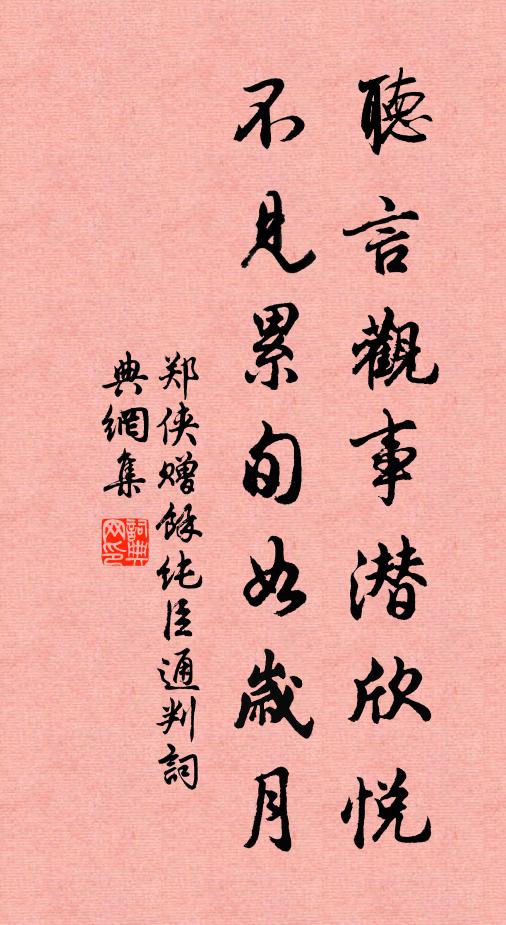 聽言觀事潜欣悅
不見累旬如歲月
郑侠赠餘纯臣通判詞
典網集
詞典网印